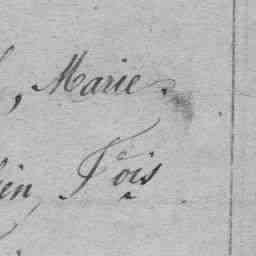 , Marie.
ien, Fois